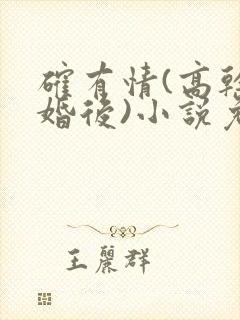 確有情(高幹
婚後)小說免
王麗群